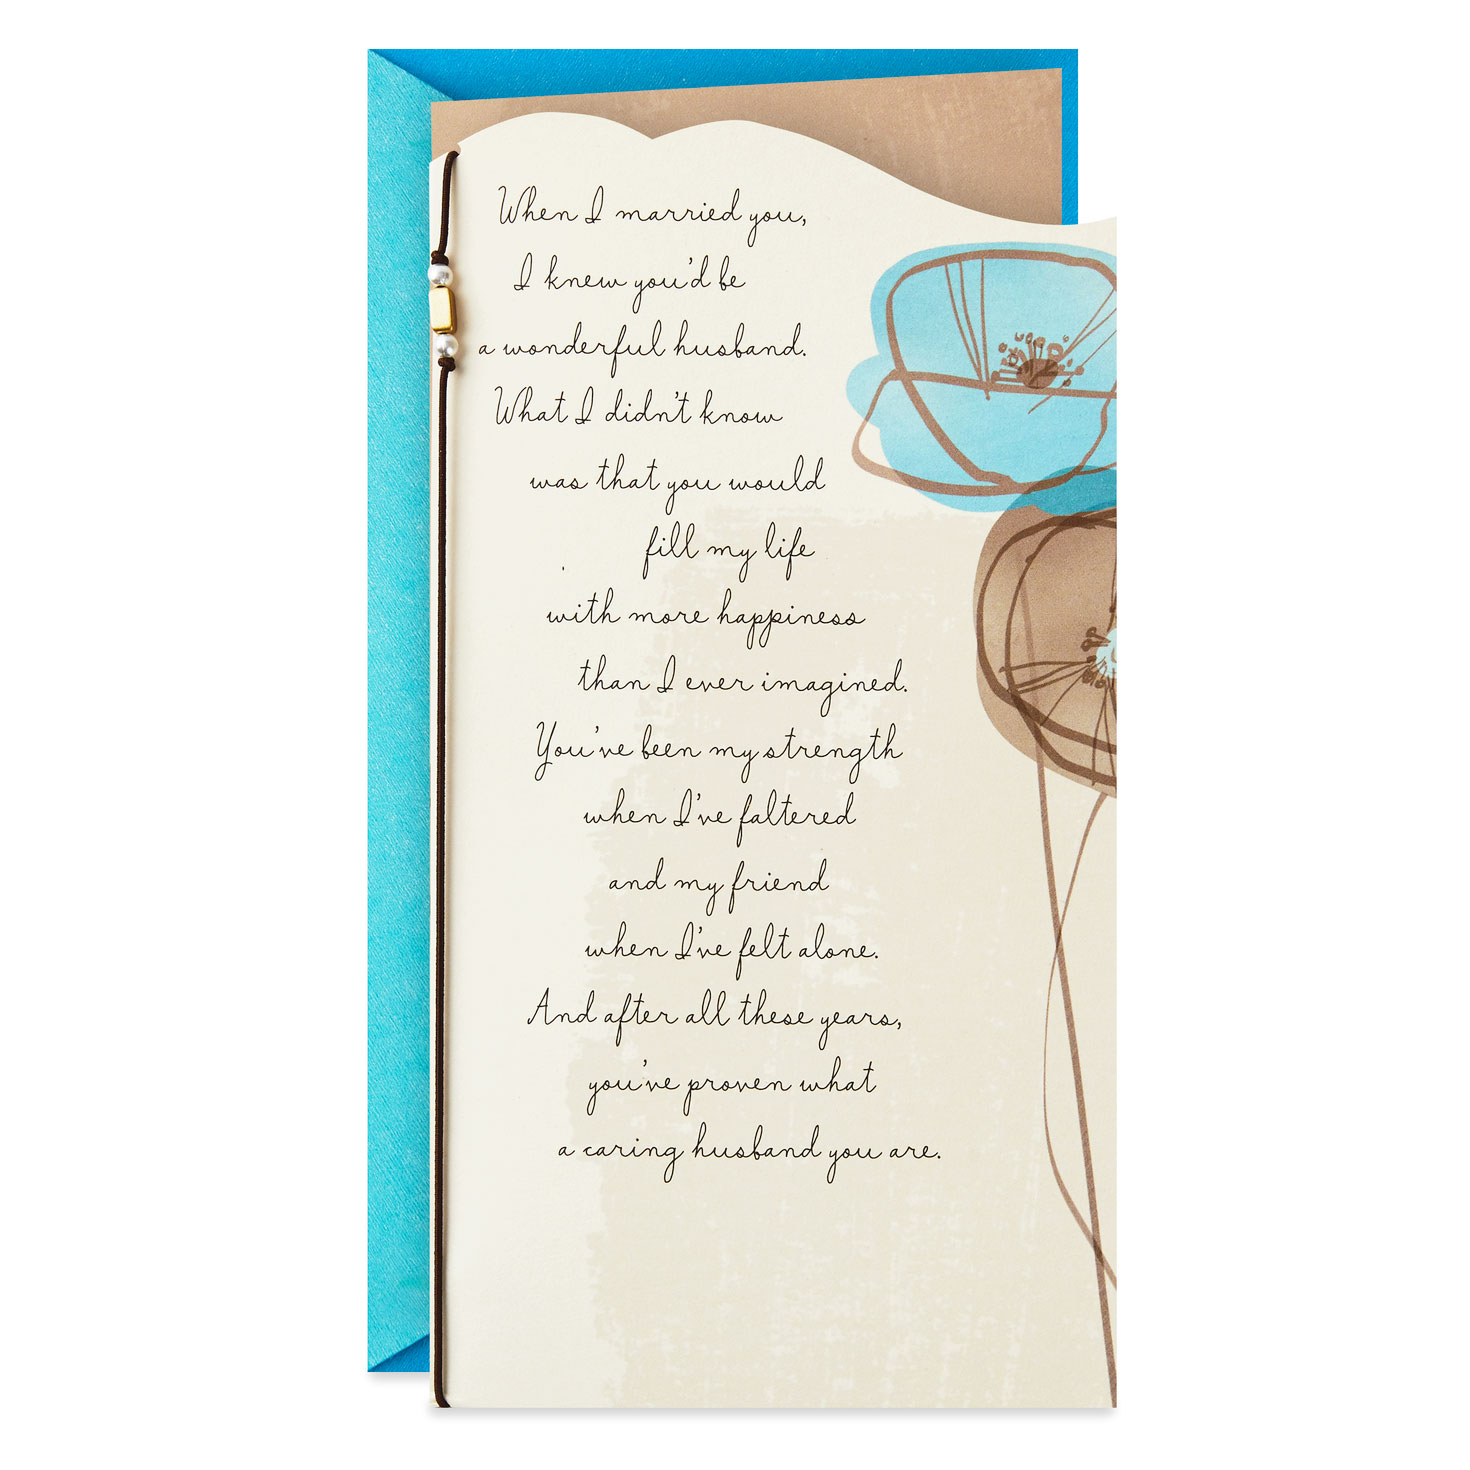 When I married you,
I knew you'd be
a wonderful husband.
What I didn't know
was that you would
fill my life
with more happiness
than I ever imagined.
You've been my strength
when I've faltered
and my friend
when I've felt alone.
And after all these years,
you've proven what
a caring husband you are.